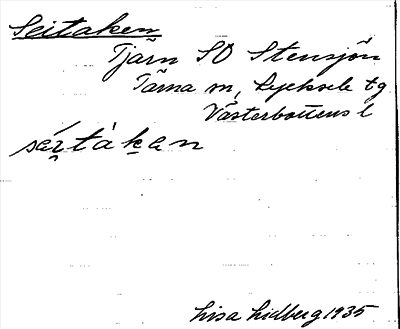 Seitaken
Tjärn SO Stensjön
Tärna m, Lycksele tg
Västerbottens l
Lisa Lidberg 1935